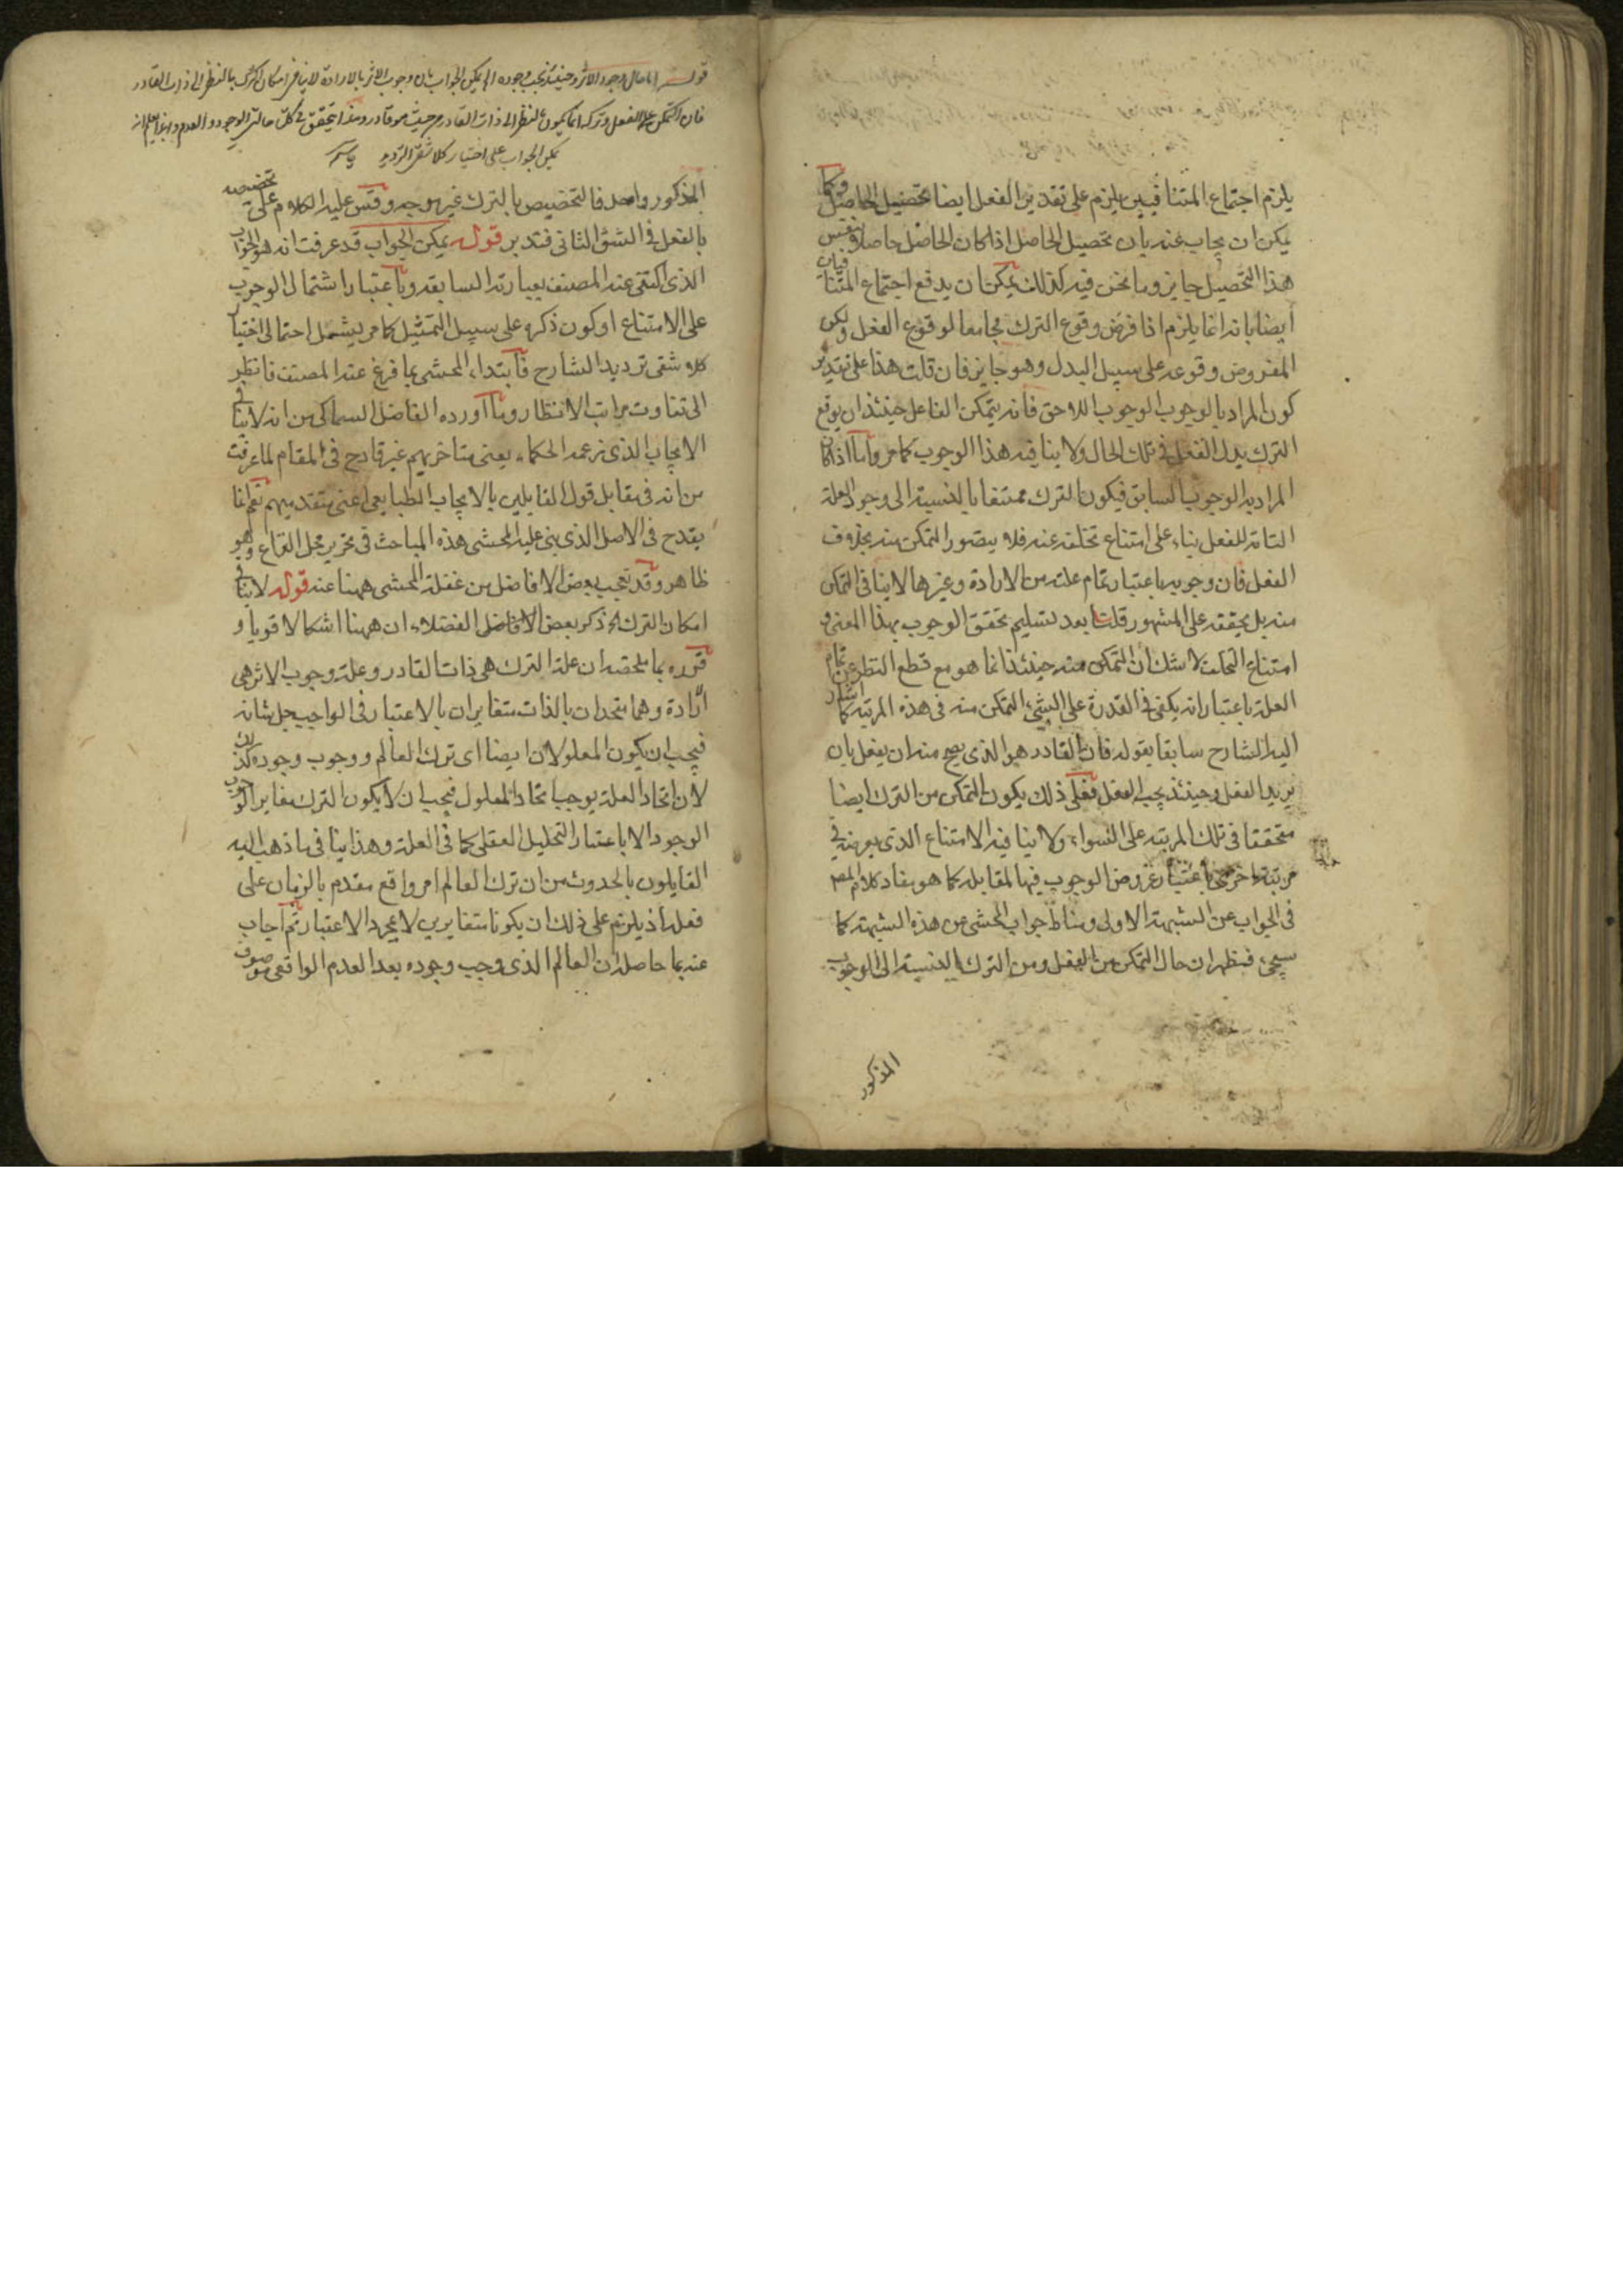 يلزم اجتماع المتنافيين يلزم على تقدير الفعل ايضا تحصيل الحاصل وكما
يمكن ان يجاب عنه بان تحصيل الحاصل اذا كان الحاصل حاصلا بنفس
هذا التحصيل جايز وما نحن فيه كذلك يمكن ان يدفع اجتماع المتنافيان
ايضا بانه انما يلزم اذا فرض وقوع الترك مجامعا لوقوع الفعل ولكن
المفروض وقوعه على سبيل البدل وهو جايز فان قلت هذا على تقدير
كون المراد بالوجوب الوجوب اللاحق فانه يتمكن الفاعل حينئذ ان يوقع
الترك بدل الفعل في تلك الحال ولا ينافيه هذا الوجوب كما مر واما اذا كان
المراد به الوجوب السابق فيكون الترك ممتنعا بالنسبة الى وجود العلة
التامة للفعل بناء على امتناع تخلفه عنه فلا يتصور التمكن منه بخلاف
الفعل فان وجوبه باعتبار تمام علته من الارادة وغيرها لا ينافى التمكن
منه بل يحققه على المشهور قلت بعد تسليم تحقق الوجوب بهذا المعنى و
امتناع التخلف لا شك ان التمكن منه حينئذ انما هو مع قطع النظر عن تمام
العلة باعتبار انه يكفى في القدرة على الشىء التمكن منه فى هذه المرتبة كما اشار
اليه الشارح سابقا بقوله فان القادر هو الذى يصح منه ان يفعل بان
يريد الفعل وحينئذ يجب الفعل فعلى ذلك يكون التمكن من الترك ايضا
متحققا فى تلك المرتبة على السواء ولا ينافيه الامتناع الذى يعرضه في
مرتبة اخرى باعتبار عروض الوجوب فيها لمقابله كما هو مفاد كلام المص
فى الجواب عن الشبهة الاولى ومناط جواب المحشى عن هذه الشبهة كما
سيجىء فظهر ان حال التمكن من الفعل ومن الترك بالنسبة الى الوجوب
المذكور
قوله اما حال وجود الاثر وحينئذ يجب وجوده اه يمكن الجواب بان وجوب الاثر بالارادة لا ينافى امكان الترك بالنظر الى ذات القادر
فان التمكن على الفعل وتركه انما يكون بالنظر الى ذات القادر من حيث هو قادر وهذا يتحقق في كلتا حالتى الوجود والعدم وبهذا يعلم انه
يمكن الجواب على اختيار كلا شقى الترديد
المذكور واحد فالتخصيص بالترك غير موجه وقس عليه الكلام على تخصيصه
بالفعل في الشق الثانى فتدبر قوله يمكن الجواب قد عرفت انه هو الجواب
الذى اكتفى عنه المصنف بعبارته السابقة وباعتبار اشتمال الوجوب
على الامتناع او كون ذكره على سبيل التمثيل كما مر يشمل احتمالى اختيار
كلا شقى ترديد الشارح فابتداء المحشى بما فرغ عنه المصنف فانظر
الى تفاوت مراتب الانظار وما اورده الفاضل السماكى من انه لا ينافى
الايجاب الذى زعمه الحكماء يعنى متاخريهم غير قادح فى المقام لما عرفت
من انه فى مقابل قول القايلين بالايجاب الطبايعى اعنى متقدميهم نعم انما
يقدح فى الاصل الذى بنى عليه المحشى هذه المباحث فى تحرير محل النزاع وهو
ظاهر وقد تعجب بعض الافاضل من غفلة المحشى ههنا عنه قوله لا ينافى
امكان الترك اه ذكر بعض الافاضل الفضلاء ان ههنا اشكالا قويا و
قرره بما ملخصه ان علة الترك هى ذات القادر وعلة وجوب الاثر هى
ارادة وهما متحدان بالذات متغايران بالاعتبار فى الواجب جل شانه
فيجب ان يكون المعلولان ايضا اى ترك العالم ووجوب وجوده كذلك
لان اتحاد العلة يوجب اتحاد المعلول فيجب ان لا يكون الترك مغايرا لوجوب
الوجود الا باعتبار التحليل العقلى كما فى العلة وهذا ينافى ما ذهب اليه
القايلون بالحدوث من ان ترك العالم امر واقع مقدم بالزمان على
فعله اذ يلزم على ذلك ان يكونا متغايرين لا بمجرد الاعتبار ثم اجاب
عنه بما حاصله ان العالم الذى وجب وجوده بعد العدم الواقعى موصوف